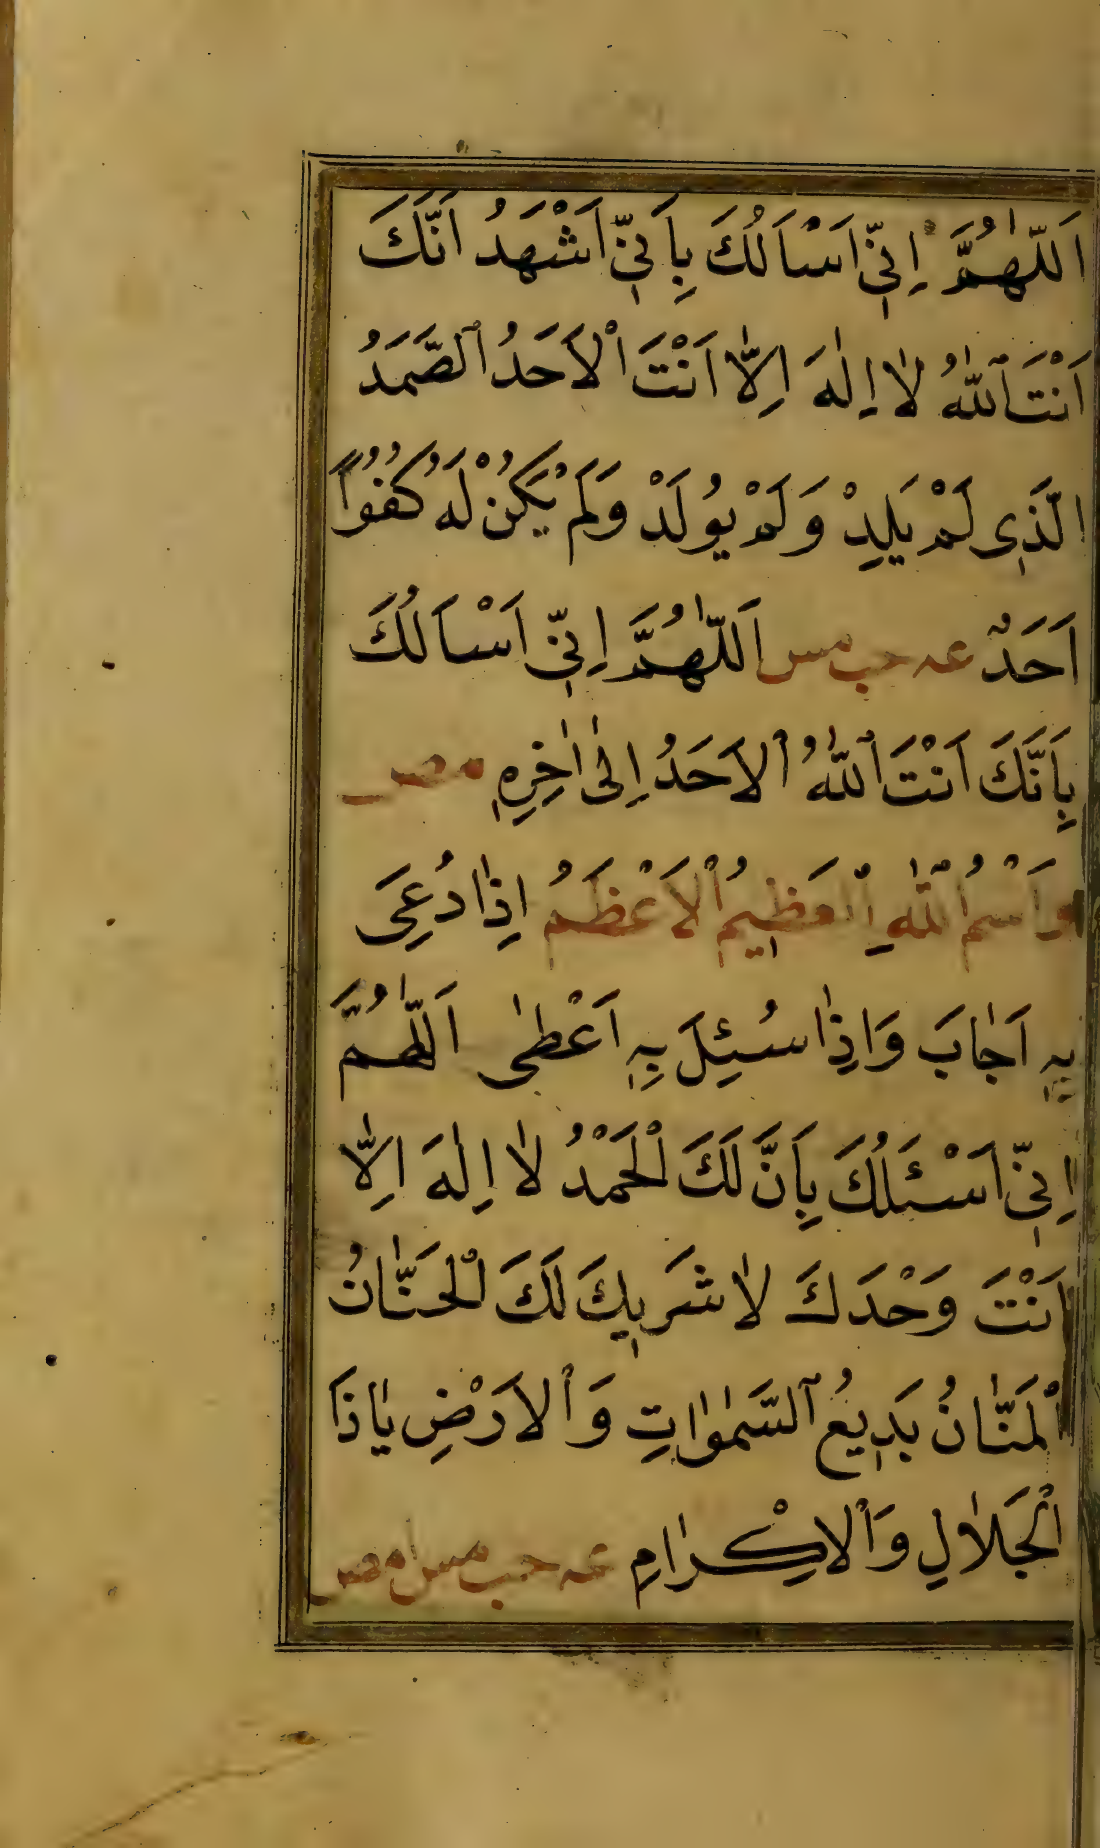 اَللّٰهُمَّ اِنِّى اَسْاَلُكَ بِاَنِّى اَشْهَدُ اَنَّكَ
اَنْتَ ٱللّٰهُ لٰا اِلٰهَ اِلّٰا اَنْتَ الْاَحَدُ ٱلصَّمَدُ
الَّذِى لَمْ يَلِدْ وَلَمْ يُولَدْ وَلَمْ يَكُنْ لَهُ كُفُوًا
اَحَدٌ عه حب مس اَللّٰهُمَّ اِنِّى اَسْاَلُكَ
بِاَنَّكَ اَنْتَ ٱللّٰهُ ٱلاَحَدُ اِلٰى اٰخِرِهِ مص
وَاسْمُ اللّٰهِ الْعَظِيمُ الْاَعْظَمُ اِذٰا دُعِىَ
بِهِ اَجٰابَ وَاِذٰا سُئِلَ بِهِ اَعْطٰى اَللّٰهُمَّ
اِنِّى اَسْئَلُكَ بِاَنَّ لَكَ الْحَمْدُ لٰا اِلٰهَ اِلّٰا
اَنْتَ وَحْدَكَ لٰا شَرِيكَ لَكَ الْحَنّٰانُ
الْمَنّٰانُ بَدِيعُ ٱلسَّمٰوٰاتِ وَالْاَرْضِ يٰا ذَا
الْجَلٰالِ وَالْاِكْرٰامِ عه حب مس ا مص